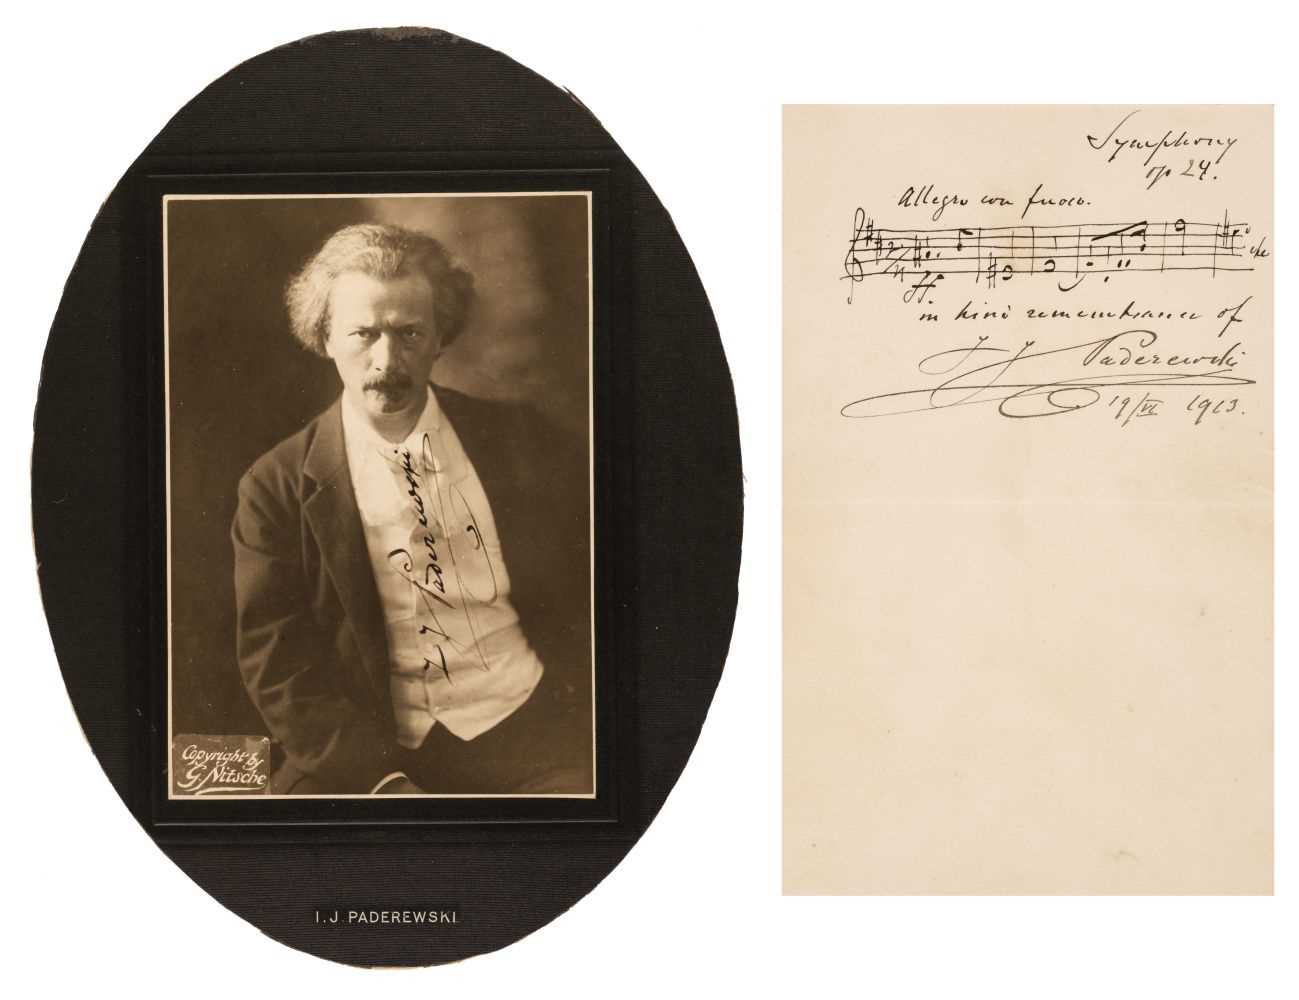 I J Paderewski
Copyright by
G. Nitsche
I. J. PADEREWSKI
Symphony
op 24.
Allegro con fuoco.
2/4
ff
etc
in kind remembrance of
I J Paderewski
19/VI 1913.